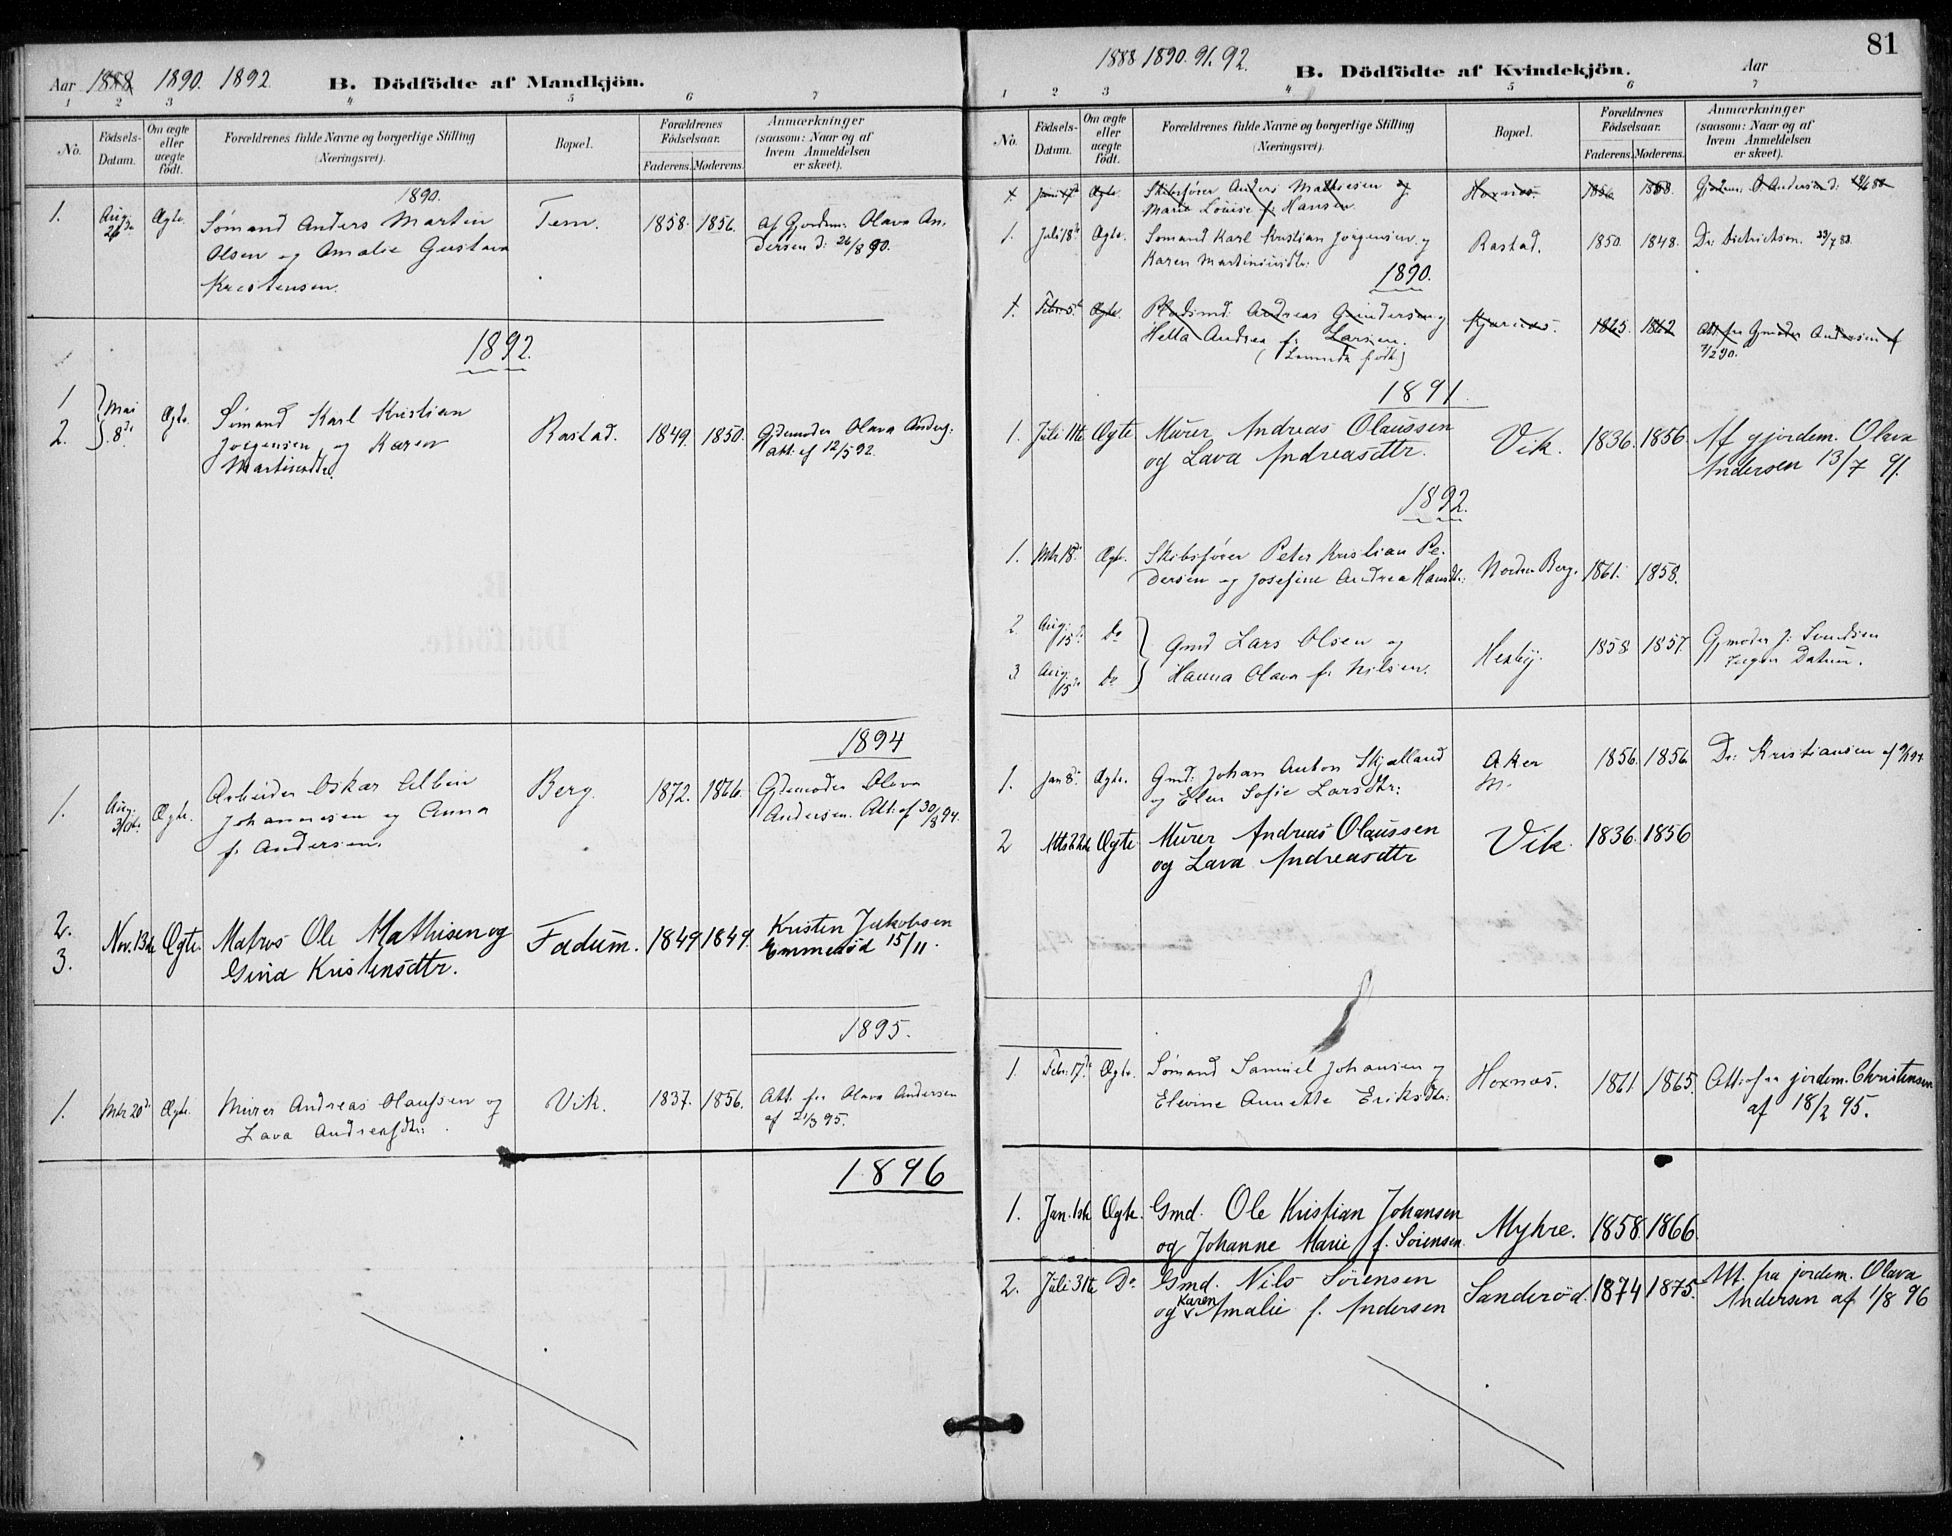 Aar 1888 1890. 1892. B. Dödfödte af Mandkjön.
1 2 3 4 5 6 7
No.
Födsels-
Datum.
Om ægte
eller
uægte
födt.
Forældrenes fulde Navne og borgerlige Stilling
(Næringsvei).
Bopæl.
Forældrenes
Födselsaar.
Faderens. Moderens.
Anmærkninger
(saasom: Naar og af
hvem Anmeldelsen
er skeet).
1890.
1. Aug. 26de Ægte. Sømand Anders Martin Tem. 1858. 1856. Af Gjordem. Olava An-
Olsen og Amalie Gustava dersen d: 26/8 90.
Kristensen.
1892.
1 } Mai Ægte. Sømand Karl Kristian Rastad. 1849. 1850. Gjdemoder Olava Anders:
2. } 8de Jørgensen og Karen att. af 12/5 92.
Martinsdtr.
1894
1. Aug. 31te Ægte. Arbeider Oskar Albin Berg. 1872. 1866. Gjdemoder Olava
Johannesen og Anna Andersen. Att. af 30/8 94.
f. Andersen.
2.
3. Nov. 13de Ægte. Matros Ole Mathisen og Fadum. 1849 1849. Kristen Jakobsen
Gina Kristensdtr. Emmerød 15/11.
1895.
1. Mts 20de Ægte. Murer Andreas Olaussen og Vik. 1837. 1856. Att. fra Olava Andersen
Lava Andreasdtr: af 21/3 95.
1896
81
1888 1890. 91. 92. B. Dödfödte af Kvindekjön. Aar
1 2 3 4 5 6 7
No.
Födsels-
Datum.
Om ægte
eller
uægte
födt.
Forældrenes fulde Navne og borgerlige Stilling
(Næringsvei).
Bopæl.
Forældrenes
Födselsaar.
Faderens. Moderens.
Anmærkninger
(saasom: Naar og af
hvem Anmeldelsen
er skeet).
1. Juni Ægte. Skibsfører Anders Mathiesen og Hoxnæs. 1858.
Marie Louise f. Hansen.
1. Juli 18de Ægte. Sømand Karl Kristian Jørgensen og Rastad. 1850. 1848. Dr: Dietrichson. 23/7 88.
Karen Martiniusdtr:
1890.
1. Febr. 5te Ægte. Pladsmd. Andreas Gundersen og Kjærnæs. 1865. 1862 Att fra Gjmoder Andersen af
Hella Andrea f. Larsen. 7/2 90.
1891.
1. Juli 11te Ægte Murer Andreas Olaussen Vik. 1836. 1856. Af gjordem. Olava
og Lava Andreasdtr. Andersen 13/7 91.
1892.
1. Mts 18de Ægte. Skibsfører Peter Kristian Pe- Nordre Berg. 1861. 1858.
dersen og Josefine Andrea Hansdtr:
2. Aug: 15de Do } Gmd Lars Olsen og Hesby. 1858 1857. Gjmoder J: Svendsen
3. Aug. 15de Do } Hanna Olava f. Nilsen. Ingen Datum.
1. Jan 8de Ægte. Gmd: Johan Anton Skjælland Aker 1856. 1856. Dr: Kristiansen af
og Elen Sofie Larsdtr: M.
2 Mts 22de Ægte Murer Andreas Olaussen Vik. 1836. 1856
og Lava Andreasdtr
1. Febr: 17de Ægte. Sømand Samuel Johansen og Hoxnæs. 1861. 1865. Att: fra jordem. Christensen
Elevine Annette Eriksdtr: af 18/2 95.
1. Jan. 1ste Ægte. Gmd. Ole Kristian Johansen Myhre. 1858. 1866.
og Johanne Marie f. Sörensen.
2. Juli 31te Do. Gmd. Nils Sörensen Sanderød. 1874 1875. Att. fra jordem. Olava
og Karen Amalie f. Andersen Andersen af 1/8 96